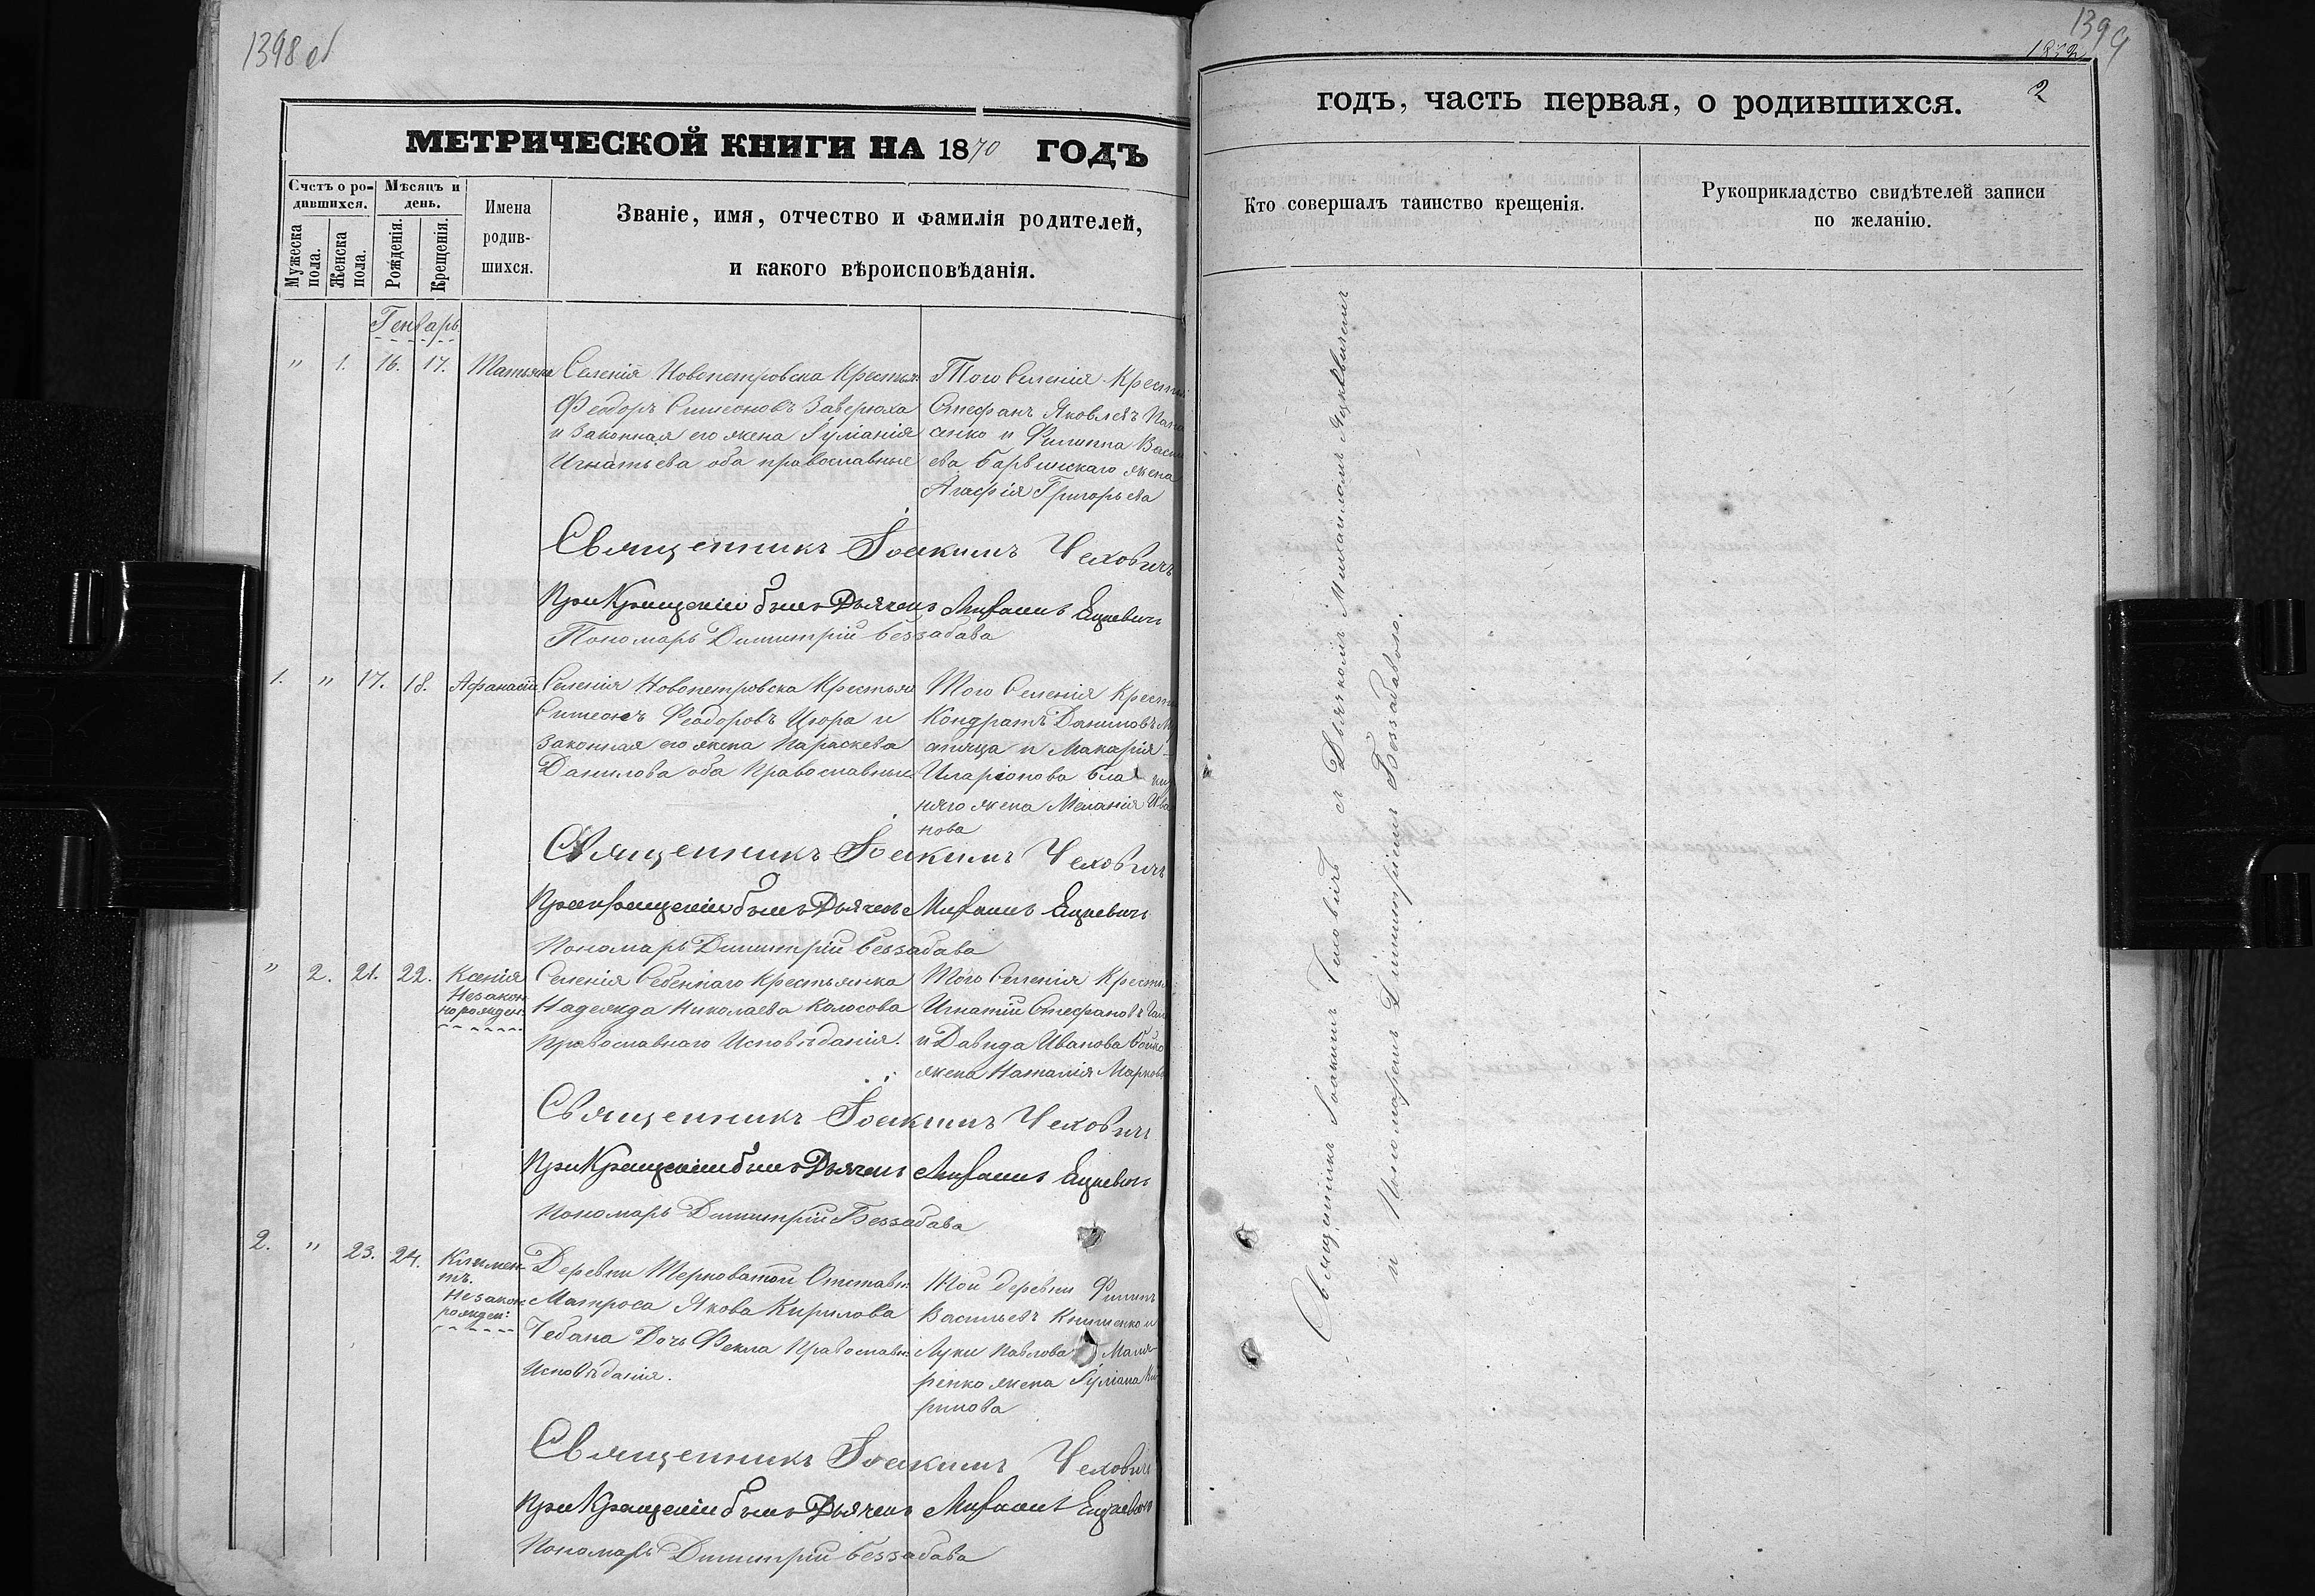 1398 об
МЕТРИЧЕСКОЙ КНИГИ НА 1870 ГОДЪ
Счетъ о ро-
дившихся.
Мѣсяцъ и
день.
Мужеска
пола.
Женска
пола.
Рожденія.
Крещенія.
Имена
родив-
шихся.
Званіе, имя, отчество и фамилія родителей,
и какого вѣроисповѣданія.
Генварь
" 1. 16. 17. Татьяна
Селенія Новопетровска Крестьян:
Феодоръ Симеоновъ Заверюха
и Законная его жена Іуліанія
Игнатьева оба православные
Того Селенія
Стефанъ Яковлевъ
сенко и Филиппа
ева Барвинскаго жена
Агафія Григорьева
Священникъ Іоакимъ Чехович
При Крещеніи былъ Дьячекъ Михаилъ Яцкевичъ
Пономарь Димитрій Беззабава
1. " 17. 18. Афанасій
Селенія Новопетровска Крестьян
Симеонъ Феодоровъ Цюра и
Законная его жена Параскева
Данилова оба Православные
Того Селенія
Кондратъ Даниловъ
спица и Макарія
Иларіонова
няго жена Меланія Ива
нова
Священникъ Іоакимъ Чеховичъ
При Крещеніи былъ Дьячекъ Михаилъ Яцкевичъ
Пономарь Димитрій Беззабава
" 2. 21. 22. Ксенія
Незакон
норожден:
Селенія Себеннаго Крестьянка
Надежда Николаева Колосова
Православнаго Исповѣданія.
Того Селенія
Игнатій Стефановъ
и Давида Иванова Бойко
жена Наталія Марков
Священникъ Іоакимъ Чеховичъ
При Крещеніи былъ Дьячекъ Михаилъ Яцкевичъ
Пономарь Димитрій Беззабава
2. " 23. 24. Климен
тъ.
Незакон:
рожден:
Деревни Терноватой Отставн:
Матроса Якова Кирилова
Чебана Дочь Фекла Православн:
Исповѣданія.
Той деревни Филипъ
Васильевъ
Луки Павлова
ренко жена Іуліана Ки
рилова
Священникъ Іоакимъ Чехович
При Крещеніи былъ Дьячекъ Михаилъ Яцкевичъ
Пономарь Димитрій Беззабава
1399
2
годъ, часть первая, о родившихся.
Кто совершалъ таинство крещенія.
Рукоприкладство свидѣтелей записи
по желанію.
Священникъ Іоакимъ Чеховичъ съ Дьячкомъ Михаиломъ Яцкевичемъ
и Пономаремъ Димитріемъ Беззабавою.